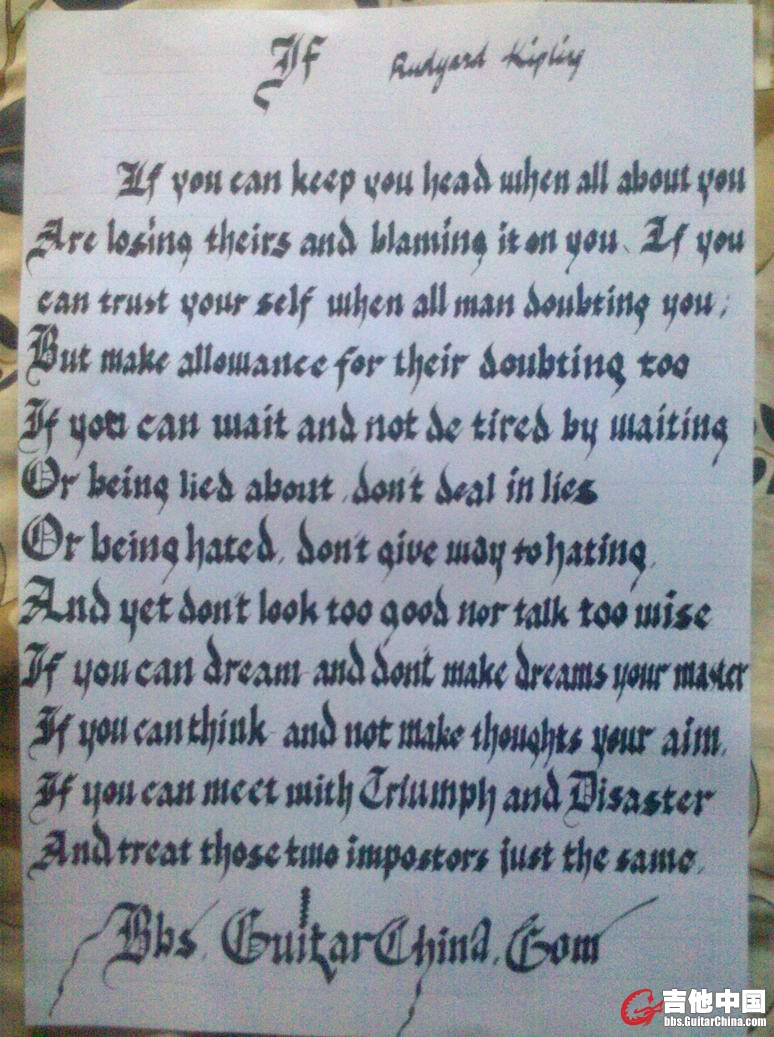 If Rudyard Kipling
If you can keep you head when all about you
Are losing theirs and blaming it on you. If you
can trust your self when all man doubting you;
But make allowance for their doubting too
If you can wait and not de tired by waiting
Or being lied about, don't deal in lies
Or being hated, don't give way to hating,
And yet don't look too good nor talk too wise
If you can dream-and dont make dreams your master
If you can think-and not make thoughts your aim,
If you can meet with Triumph and Disaster
And treat those two impostors just the same,
Bbs.GuitarChina.Com
吉他中国
bbs.GuitarChina.com